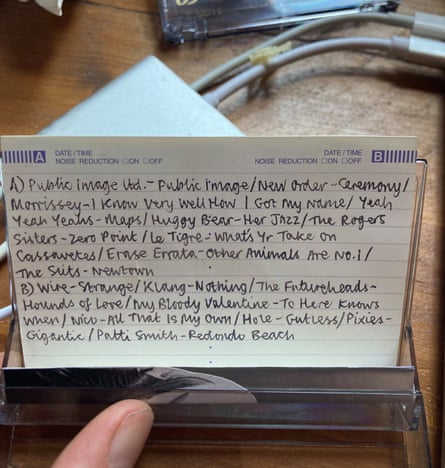 A DATE/TIME NOISE REDUCTION □ON □OFF
DATE/TIME NOISE REDUCTION □ON □OFF B
A) Public image Ltd.- Public image/New Order-Ceremony/
Morrissey-I Know Very Well How I Got My Name/Yeah
Yeah Yeahs-Maps/Huggy Bear-Her Jazz/The Rogers
Sisters-Zero Point/Le Tigre-What's Yr Take on
Cassavetes/Erase Errata-Other Animals Are No.1/
The Slits-Newtown
B) Wire-Strange/Klang-Nothing/The Futureheads-
Hounds of Love/My Bloody Valentine-To Here Knows
When/Nico-All That Is My Own/Hole-Gutless/Pixies-
Gigantic/Patti Smith-Redondo Beach